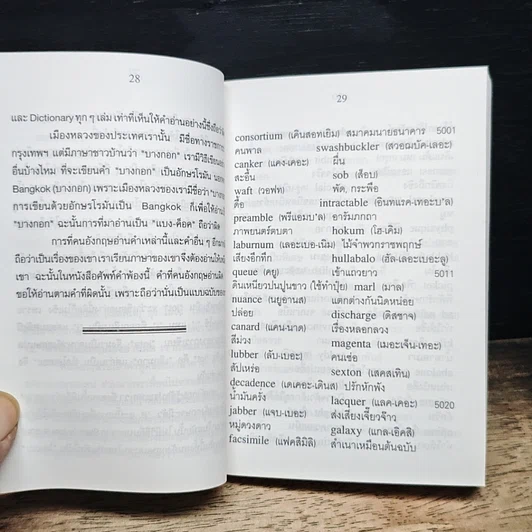 28
และ Dictionary ทุก ๆ เล่ม เท่าที่เห็นให้คำอ่านอย่างนี้ซึ่งถือว่า
เมืองหลวงของประเทศเรานั้น มีชื่อทางราชการ
กรุงเทพฯ แต่มีภาษาชาวบ้านว่า "บางกอก" เรามีวิธีเขียน
อื่นบ้างไหม ที่จะเขียนคำ "บางกอก" เป็นอักษรโรมัน
Bangkok (บางกอก) เพราะเมืองหลวงของเรามีชื่อว่า "บางกอก
การเขียนด้วยอักษรโรมันเป็น Bangkok ก็เพื่อให้อ่าน
"บางกอก" ฉะนั้นการที่มาอ่านเป็น "แบง-ค็อค" ถือว่าผิด
การที่คนอังกฤษอ่านคำเหล่านี้และคำอื่น ๆ อีก
ถือว่าเป็นเรื่องของเขา เราเรียนภาษาของเขาจึงต้องอ่านให้
เขา ฉะนั้นในหนังสือศัพท์คำพ้องนี้ คำที่คนอังกฤษอ่านผิด
ขอให้อ่านตามคำที่ผิดนั้น เพราะถือว่านั่นเป็นแบบฉบับของ
29
consortium (เคินสอทเยิม) สมาคมนายธนาคาร 5001
คนพาล swashbuckler (สวอฌบัค-เลอะ)
canker (แคง-เคอะ) ผื่น
สะอื้น sob (ส็อบ)
waft (วอฟท) พัด, กระพือ
ดื้อ intractable (อินทแรค-เทอะบ'ล)
preamble (พรีแอมบ'ล) อารัมภกถา
ภาพยนตร์ตบตา hokum (โฮ-เคิม)
laburnum (เลอะเบอ-เนิม) ไม้จำพวกราชพฤกษ์
เสียงอึกทึก hullabalo (ฮัล-เลอะเบอะลู)
queue (คยู) เข้าแถวยาว 5011
ดินเหนียวปนปูนขาว (ใช้ทำปุ๋ย) marl (มาล)
nuance (นยูอานส) แตกต่างกันนิดหน่อย
ปล่อย discharge (ดิสชาจ)
canard (แคน-นาด) เรื่องหลอกลวง
สีม่วง magenta (เมอะเจ็น-เทอะ)
lubber (ลับ-เบอะ) คนเซ่อ
สัปเหร่อ sexton (เสคสเทิน)
decadence (เดเคอะ-เดินส) ปรักหักพัง
น้ำมันครั่ง lacquer (แลค-เคอะ) 5020
jabber (แจบ-เบอะ) ส่งเสียงเจี๊ยวจ๊าว
หมู่ดวงดาว galaxy (แกล-เอ็คสิ)
facsimile (แฟคสิมิลิ) สำเนาเหมือนต้นฉบับ